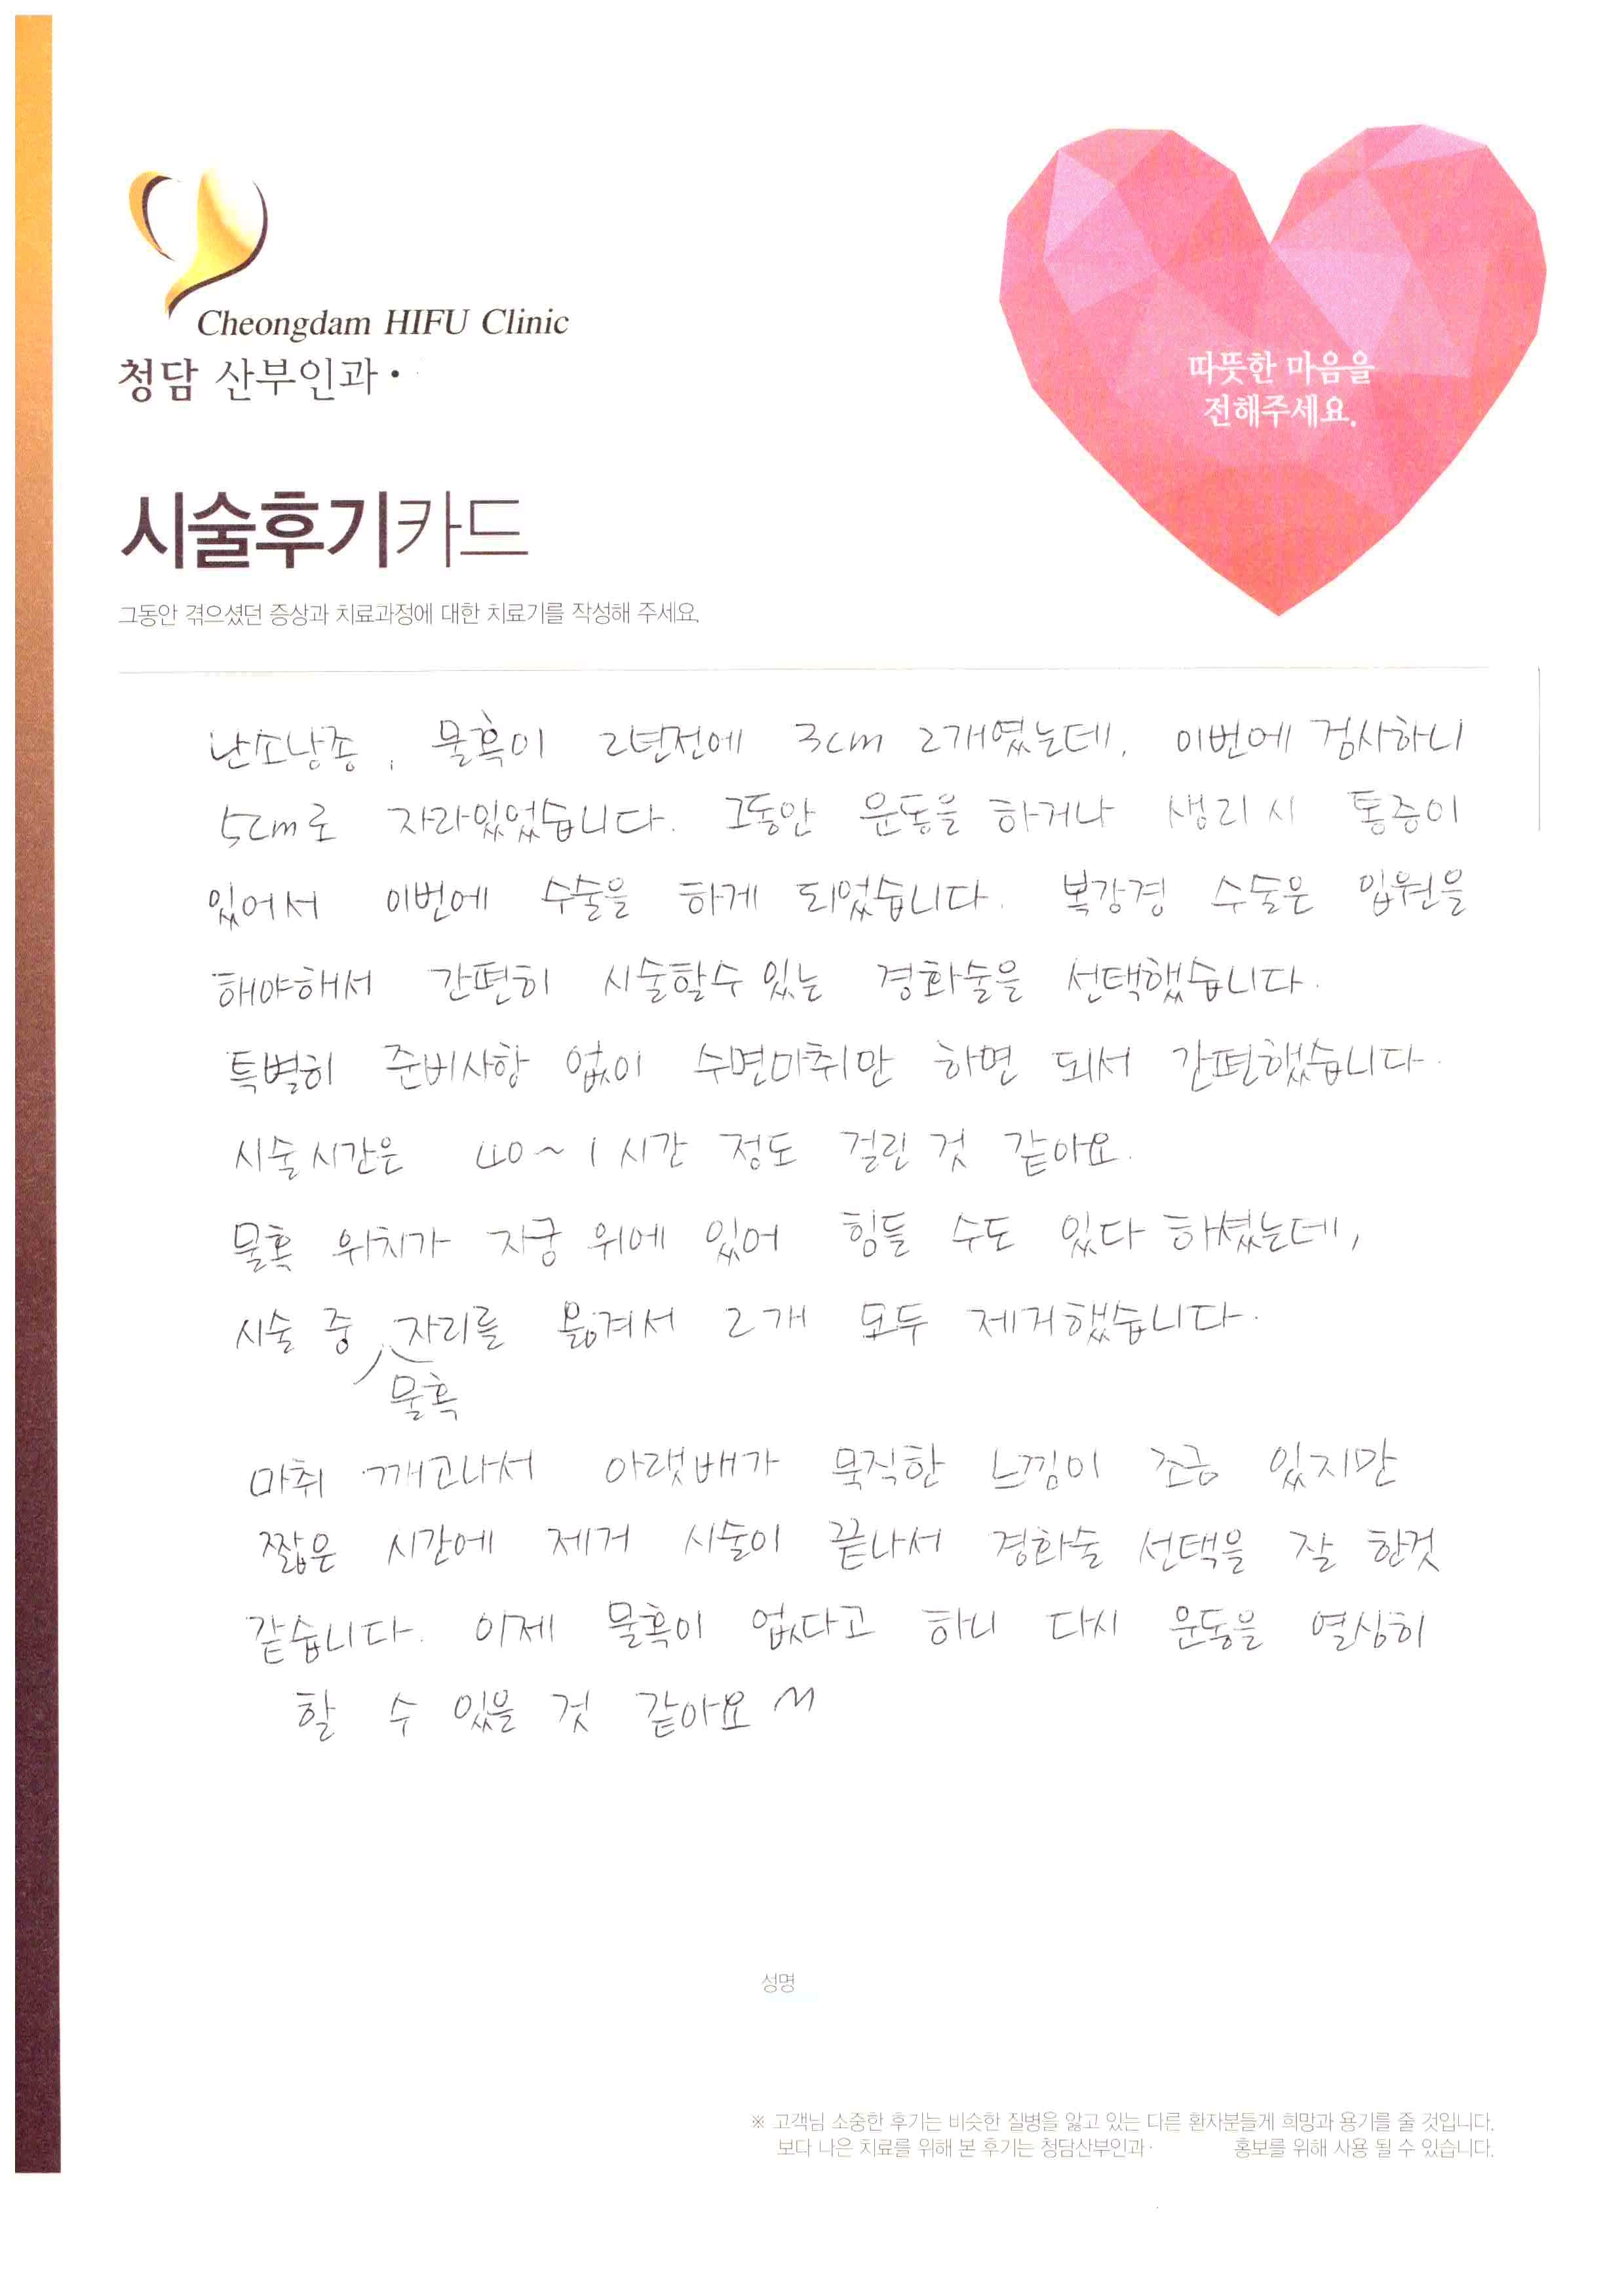 Cheongdam HIFU Clinic
청담 산부인과·
따뜻한 마음을
전해주세요.
시술후기카드
그동안 겪으셨던 증상과 치료과정에 대한 치료기를 작성해 주세요.
난소낭종, 물혹이 2년전에 3cm 2개였는데, 이번에 검사하니
5cm로 자라있었습니다. 그동안 운동을 하거나 생리시 통증이
있어서 이번에 수술을 하게 되었습니다. 복강경 수술은 입원을
해야해서 간편히 시술할수 있는 경화술을 선택했습니다.
특별히 준비사항 없이 수면마취만 하면 되서 간편했습니다.
시술시간은 40~1시간 정도 걸린 것 같아요.
물혹 위치가 자궁 위에 있어 힘들 수도 있다 하셨는데,
시술 중 자리를 옮겨서 2개 모두 제거했습니다.
물혹
마취 깨고나서 아랫배가 묵직한 느낌이 조금 있지만
짧은 시간에 제거 시술이 끝나서 경화술 선택을 잘 한것
같습니다. 이제 물혹이 없다고 하니 다시 운동을 열심히
할 수 있을 것 같아요~
성명
※ 고객님 소중한 후기는 비슷한 질병을 앓고 있는 다른 환자분들게 희망과 용기를 줄 것입니다.
보다 나은 치료를 위해 본 후기는 청담산부인과· 홍보를 위해 사용 될 수 있습니다.